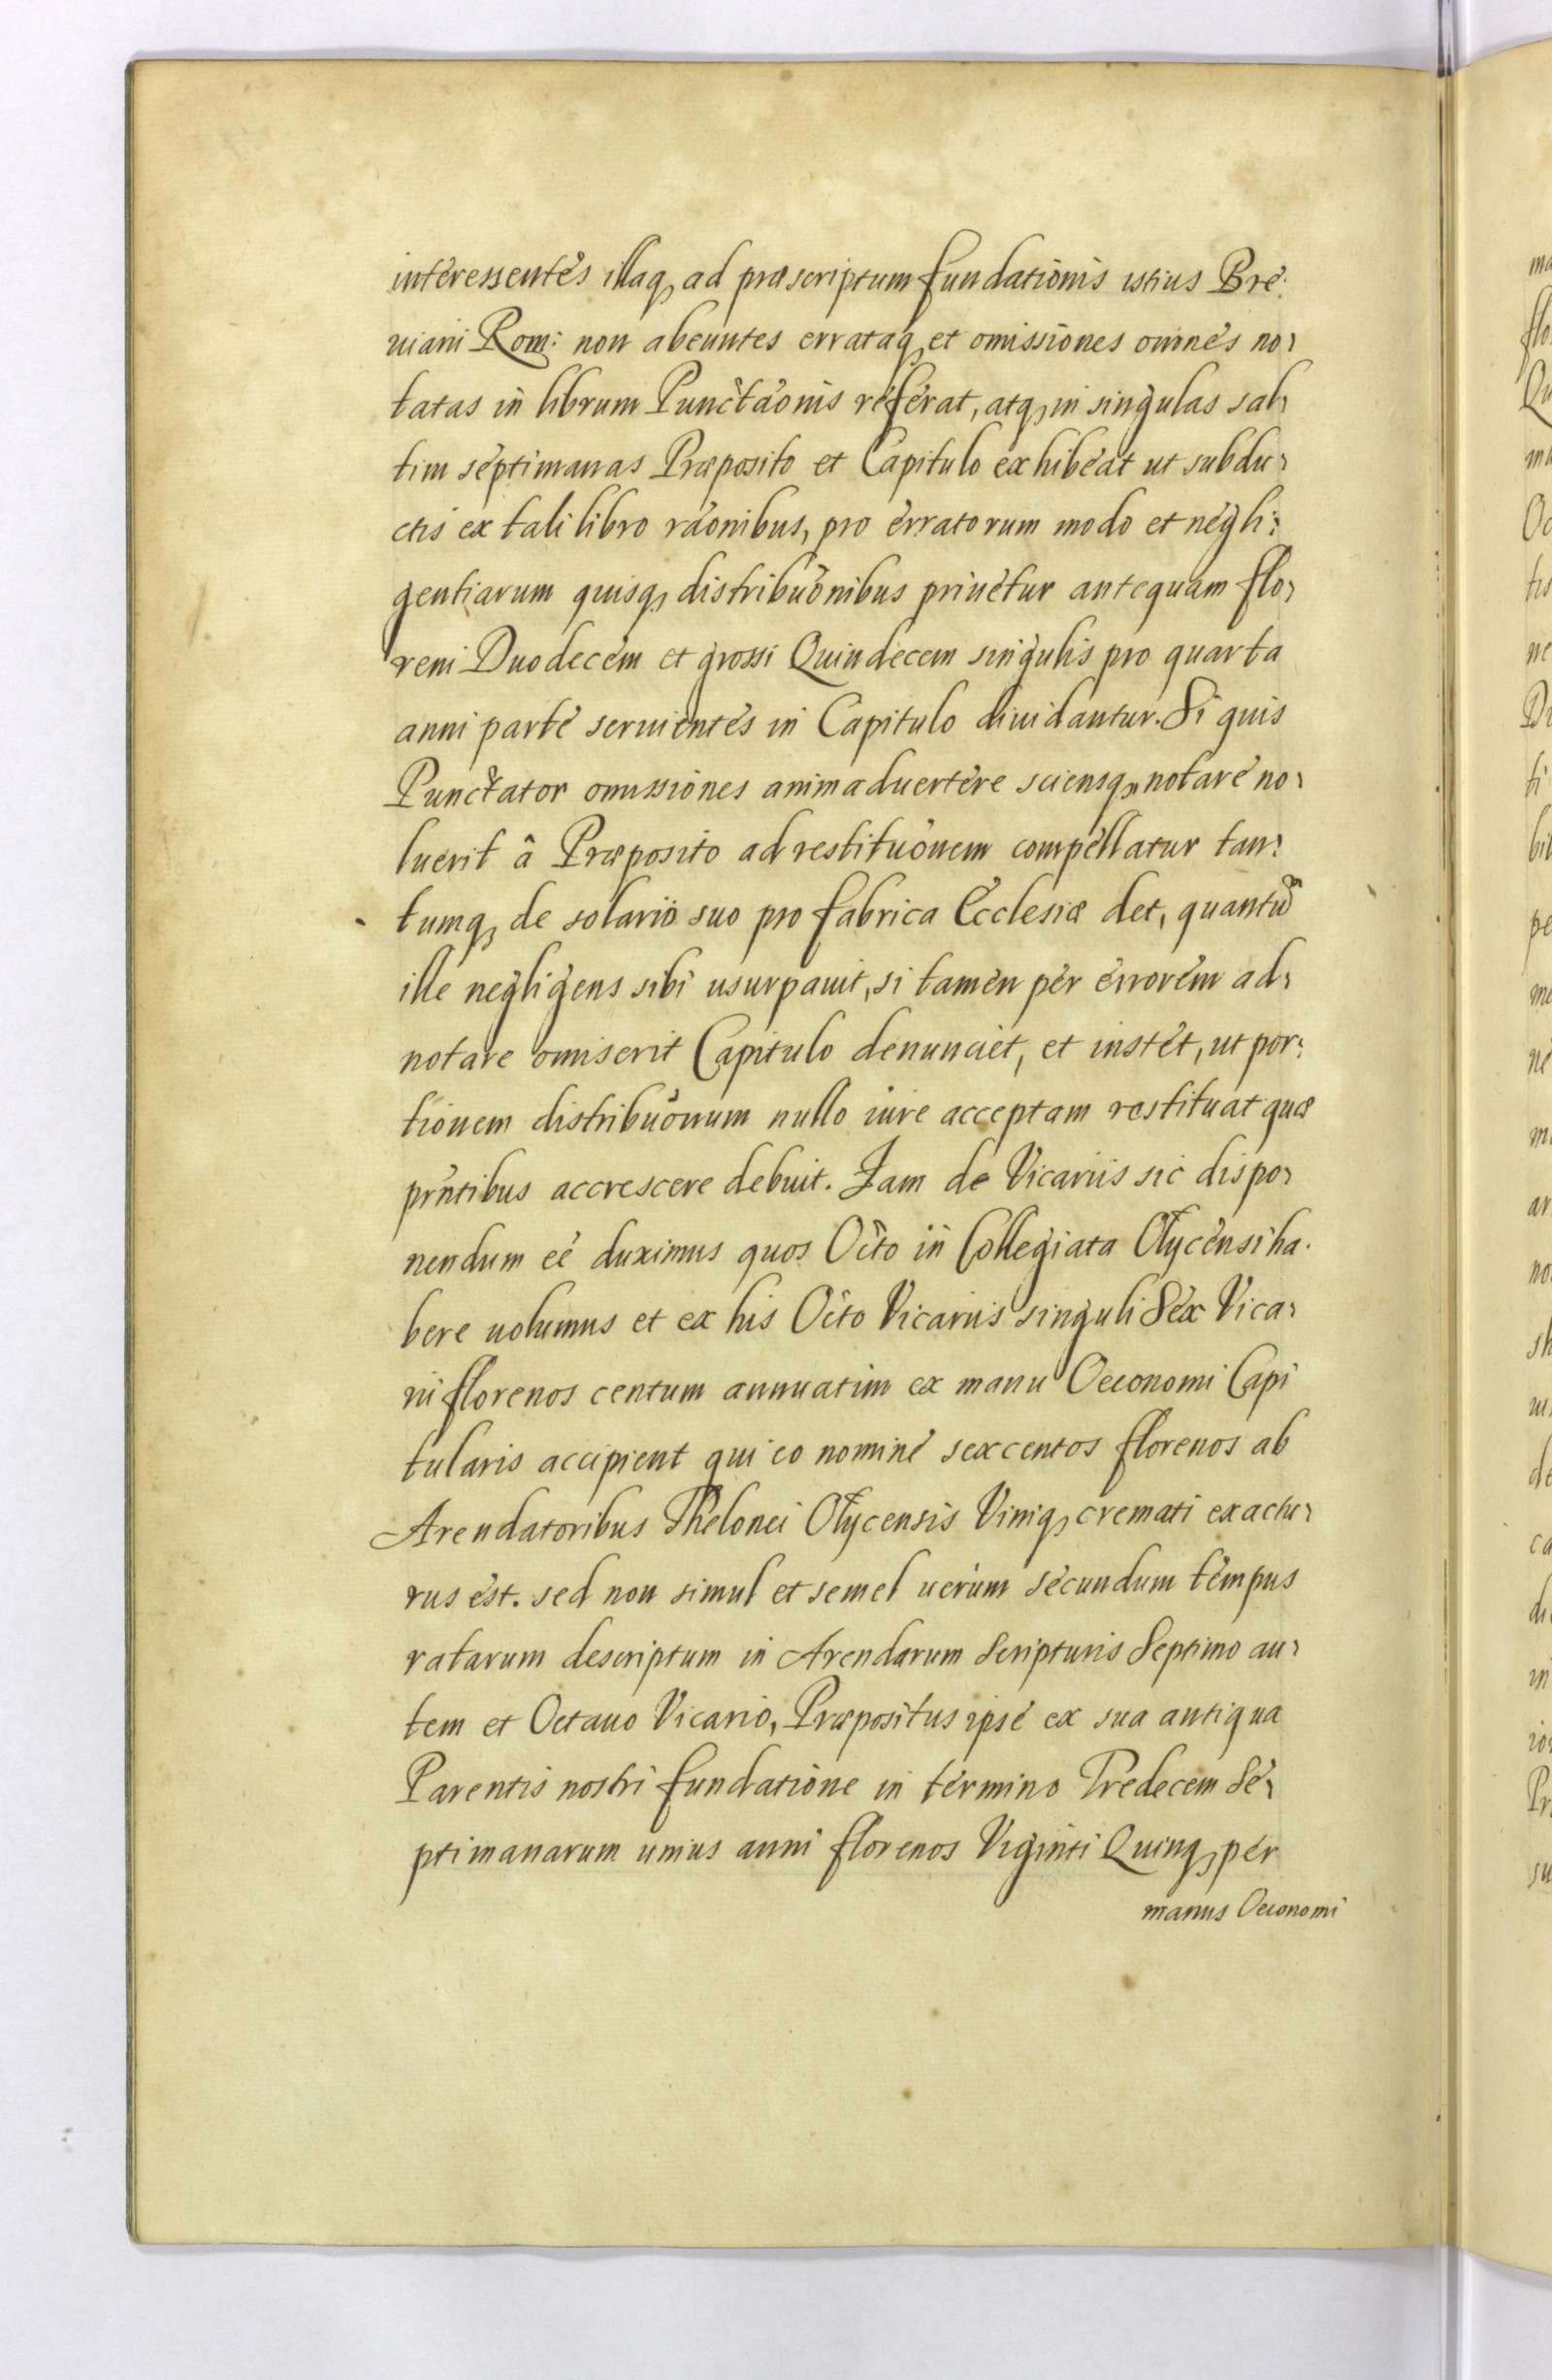 interessentes illaq, ad præscriptum fundationis istius Bre:
uiarii Rom: non abeuntes errataq, et omissiones omnes no,
tatas in librum Punctaõnis referat, atq, in singulas sal,
tim septimanas Præposito et Capitulo exhibeat ut subdu,
ctis ex tali libro raõnibus, pro erratorum modo et negli:
gentiarum quisq, distribuõnibus priuetur antequam flo,
reni Duodecem et grossi Quindecem singulis pro quarta
anni parte seruientes in Capitulo diuidantur. Si quis
Punctator omissiones animaduertere sciensq, notare no,
luerit â Præposito ad restituõnem compellatur tan:
tumq, de solario suo pro fabrica Ecclesiæ det, quantũ
ille negligens sibi usurpauit, si tamen per errorem ad,
notare omiserit Capitulo denunciet, et instet, ut por:
tionem distribuõnum nullo iure acceptam restituat quæ
pr̃ntibus accrescere debuit. Jam de Vicariis sic dispo,
nendum eẽ duximus quos Octo in Collegiata Olycensi ha.
bere uolumus et ex his Octo Vicariis singuli Sex Vica,
rii florenos centum annuatim ex manu Oeconomi Capi
tularis accipient qui eo nomine sexcentos florenos ab
Arendatoribus Thelonei Olycensis Viniq, cremati exactu,
rus est. sed non simul et semel uerum secundum tempus
ratarum descriptum in Arendarum Scripturis Septimo au,
tem et Octauo Vicario, Præpositus ipse ex sua antiqua
Parentis nostri fundatione in termino Tredecem Se,
ptimanarum unius anni florenos Viginti Quinq, per
manus Oeconomi